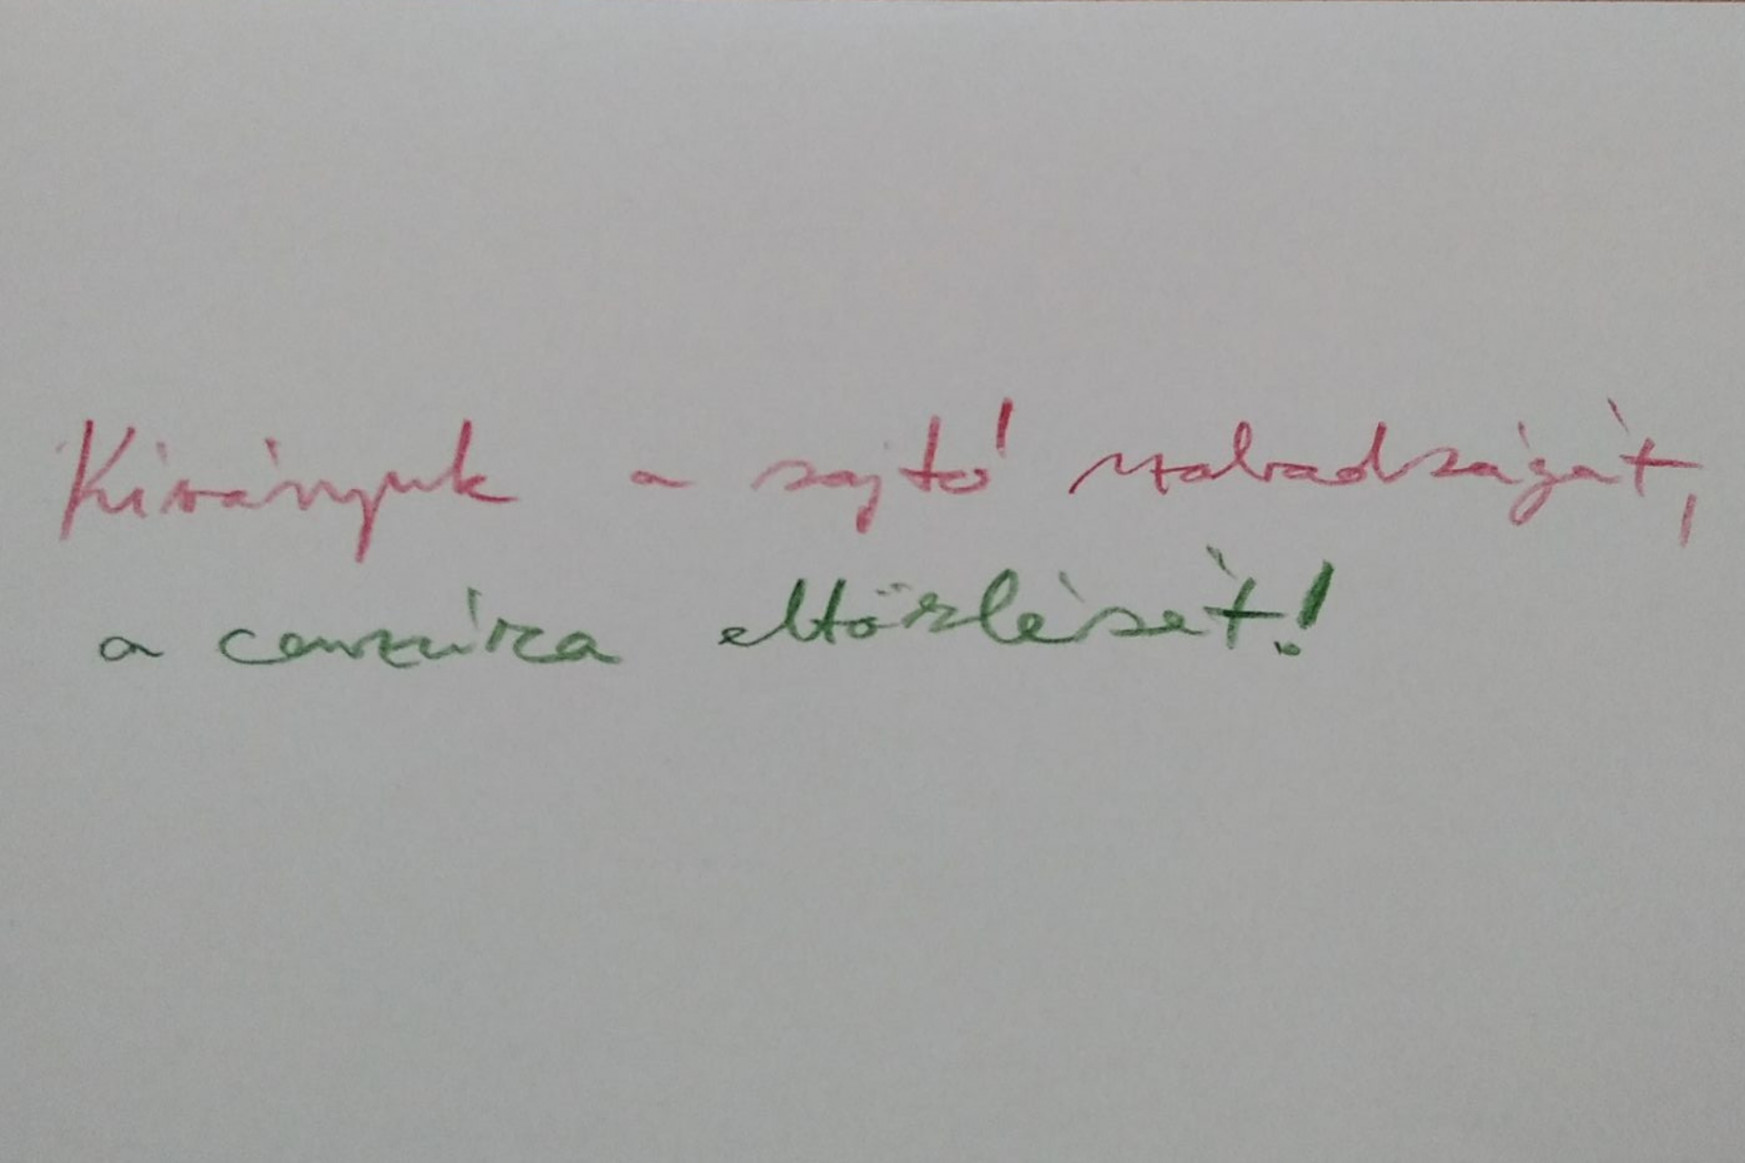 Kiványuk a sajtó szabadságát,
a cenzúra eltörlését!